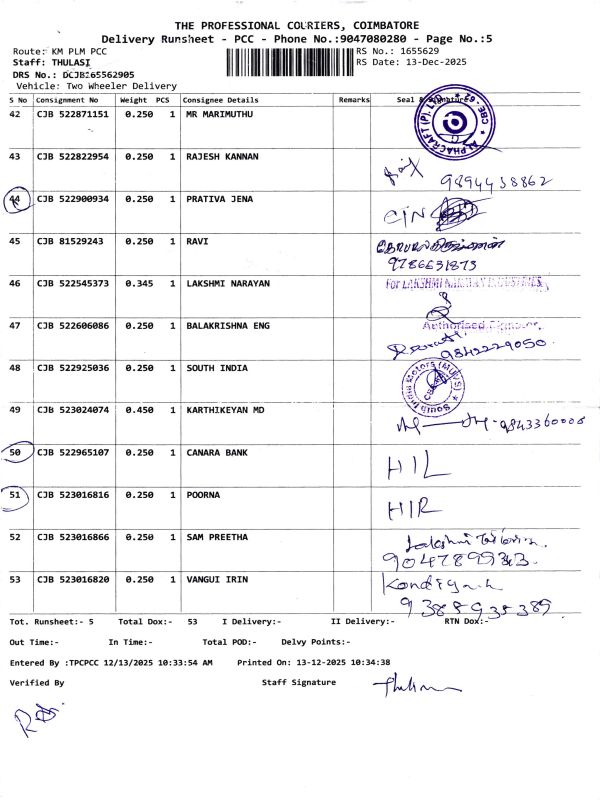 THE PROFESSIONAL COURIERS, COIMBATORE
Delivery Runsheet - PCC - Phone No.:9047080280 - Page No.:5
Route: KM PLM PCC
RS No.: 1655629
Staff: THULASI
RS Date: 13-Dec-2025
DRS No.: DCJB165562905
Vehicle: Two Wheeler Delivery
S No Consignment No Weight PCS Consignee Details Remarks Seal & Signature
42 CJB 522871151 0.250 1 MR MARIMUTHU
43 CJB 522822954 0.250 1 RAJESH KANNAN
9894438862
44 CJB 522900934 0.250 1 PRATIVA JENA
45 CJB 81529243 0.250 1 RAVI
9786631873
46 CJB 522545373 0.345 1 LAKSHMI NARAYAN For LAKSHMI NARAYAN INDUSTRIES
47 CJB 522606086 0.250 1 BALAKRISHNA ENG Authorised Signatory
9842229050
48 CJB 522925036 0.250 1 SOUTH INDIA
49 CJB 523024074 0.450 1 KARTHIKEYAN MD
50 CJB 522965107 0.250 1 CANARA BANK HIL
51 CJB 523016816 0.250 1 POORNA HIR
52 CJB 523016866 0.250 1 SAM PREETHA
53 CJB 523016820 0.250 1 VANGUI IRIN
9388935389
Tot. Runsheet:- 5 Total Dox:- 53 I Delivery:- II Delivery:- RTN Dox:-
Out Time:- In Time:- Total POD:- Delvy Points:-
Entered By :TPCPCC 12/13/2025 10:33:54 AM Printed On: 13-12-2025 10:34:38
Verified By Staff Signature